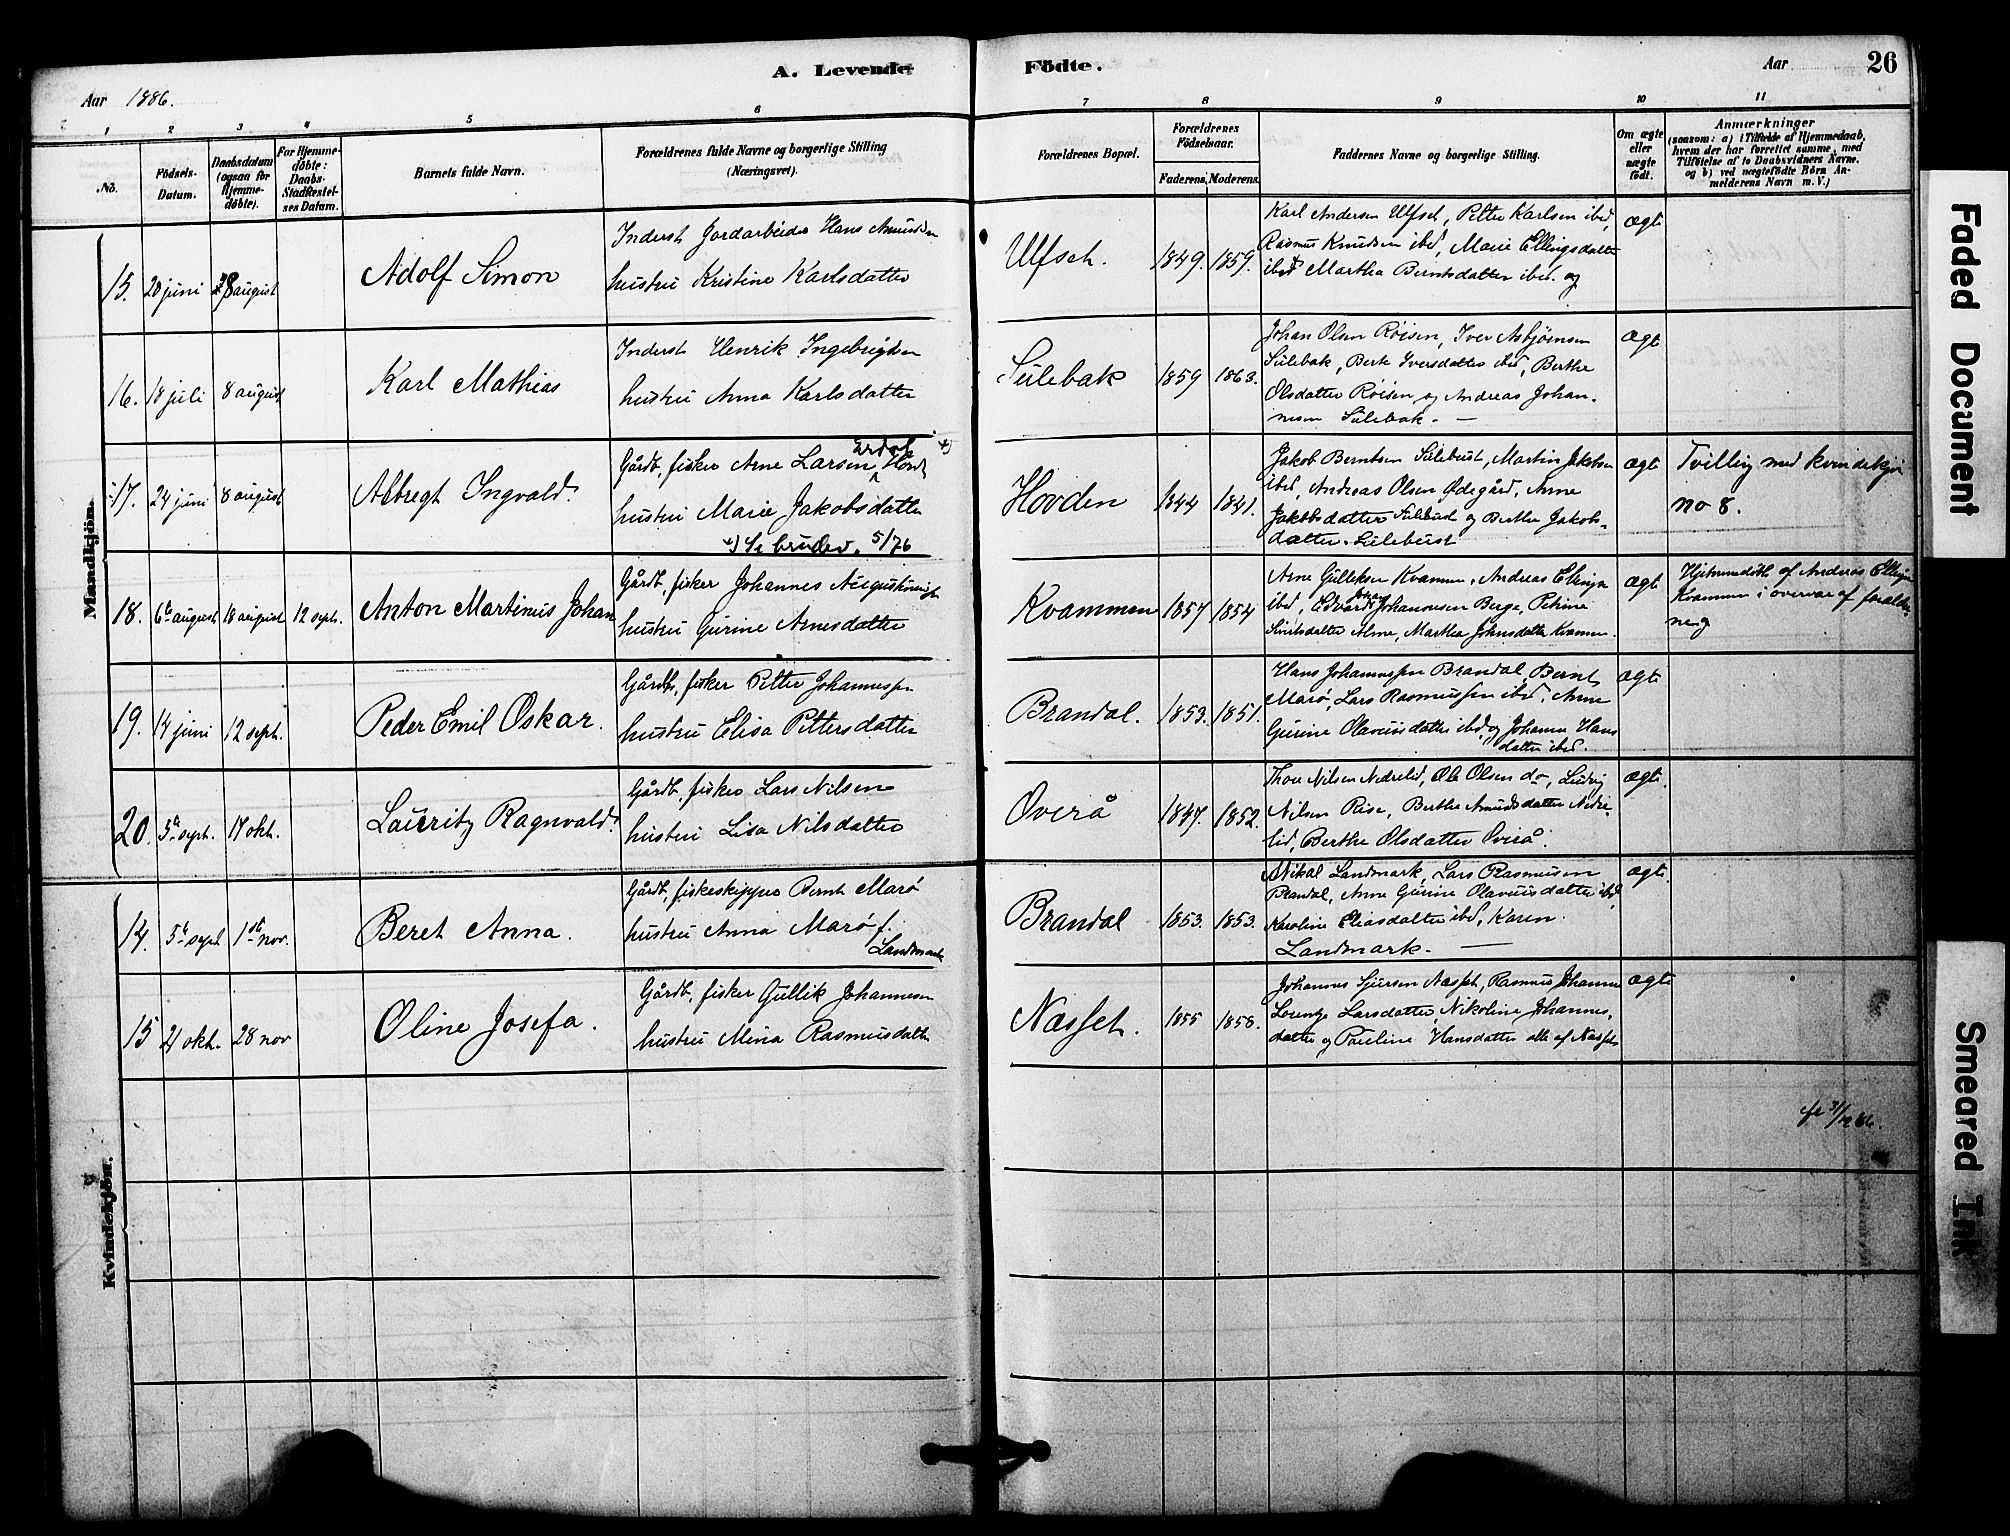 A. Levende Födte.
Aar 1886.
Aar
26
1 2 3 4 5 6 7 8 9 10 11
No.
Födsels-Datum.
Daabsdatum (ogsaa for Hjemme-döbte).
For Hjemme-döbte: Daabs-Stadfæstel-ses Datum.
Barnets fulde Navn.
Forældrenes fulde Navne og borgerlige Stilling (Næringsvei).
Forældrenes Bopæl.
Forældrenes Födselsaar.
Faderens. Moderens.
Faddernes Navne og borgerlige Stilling.
Om ægte eller uægte født.
Anmærkninger
(saasom: a) i Tilfælde af Hjemmedaab,
hvem der har forrettet samme, med
Tilföielse af to Daabsvidners Navne,
og b) ved uægtefödte Börn An-
melderens Navn m. V.)
Mandkjön.
15. 20 juni 8 august
Adolf Simon
Inderst Jordarbeider Hans Amundsen
hustru Kristine Karlsdatter
Ulfset. 1849. 1859.
Karl Andersen Ulfset, Petter Karlsen ibid,
Rasmus Knudsen ibid, Marie Ellingsdatter
ibid Martha Berntsdatter ibid. og
ægte
16. 18 juli 8 august
Karl Mathias
Inderst Henrik Ingebrigtsen
hustru Anna Karlsdatter
Sulebak 1859 1863.
Johan Olsen Röisen, Iver Asbjørnsen
Sulebak, Berte Iversdatter ibid, Berthe
Olsdatter Röisen og Andreas Johan-
nesen Sulebak. —
ægte
17. 24 juni 8 august
Albregt Ingvald.
Gårdb. fisker Arne Larsen Erdal, Hovd +)
hustru Marie Jakobsdatter
+) Se brudev. 5/76
Hovden 1844 1841.
Jakob Berntsen Sulebust, Martin Jakobsen
ibid, Andreas Olsen Ødegård, Anne
Jakobsdatter Sulebust og Berthe Jakobs-
datter. Sulebust
ægte
Tvilling med kvindekjn
no 8.
18. 6te august 18 august 12 sept.
Anton Martinus Johan
Gårdb, fisker Johannes
hustru Gurine Arnesdatter
Kvammen 1857 1854
Arne Gulliksen Kvammen, Andreas Ellingsen
ibid, Edvard Johannesen Berge, Petrine
Knutsdatter Alme, Martha Johnsdatter Kvamm.
ægte
Hjemmedöbt af Andreas Ellingsen
Kvammen i overvær af foræld-
rene
19. 14 juni 12 sept.
Peder Emil Oskar.
Gårdb, fisker Petter Johannessen
hustru Elisa Pettersdatter
Brandal. 1853. 1851.
Hans Johannessen Brandal, Bernt
Marö, Lars Rasmussen ibid, Anne
Gurine Olaviusdatter ibid og Johanne Hans
datter ibid.
ægte
20. 5te sept. 17 okt.
Lauritz Ragnvald.
Gårdb. fisker Lars Nilsen
hustru Lisa Nilsdatter
Overå 1847. 1852.
Thore Nilsen Nedrelid, Ole Olsen do, Ludvig
Nilsen Rise, Berthe Amundsdatter Nedre-
lid, Berthe Olsdatter Overå.
ægte
Kvindekjön.
14. 5te sept 1ste nov.
Beret Anna.
Gårdb, fiskeskipper Bernt Marö
hustru Anna Marö f.
Landmark
Brandal 1853. 1853.
Nikal Landmark, Lars Rasmusen
Brandal, Anne Gurine Olaviusdatter ibid
Karoline Eliasdatter ibid, Karen
Landmark. —
ægte.
15 21 okt. 28 nov
Oline Josefa.
Gårdb, fisker Gullik Johannesen
hustru Mina Rasmusdatter
Næsset. 1855 1858.
Johannes Sjursen Næsset, Rasmus Johannes
Lorentze Larsdatter, Nikoline Johannes-
datter og Pauline Hansdatter alle af Næsset
ægte
31/12 86.
Faded Document
Smeared Ink